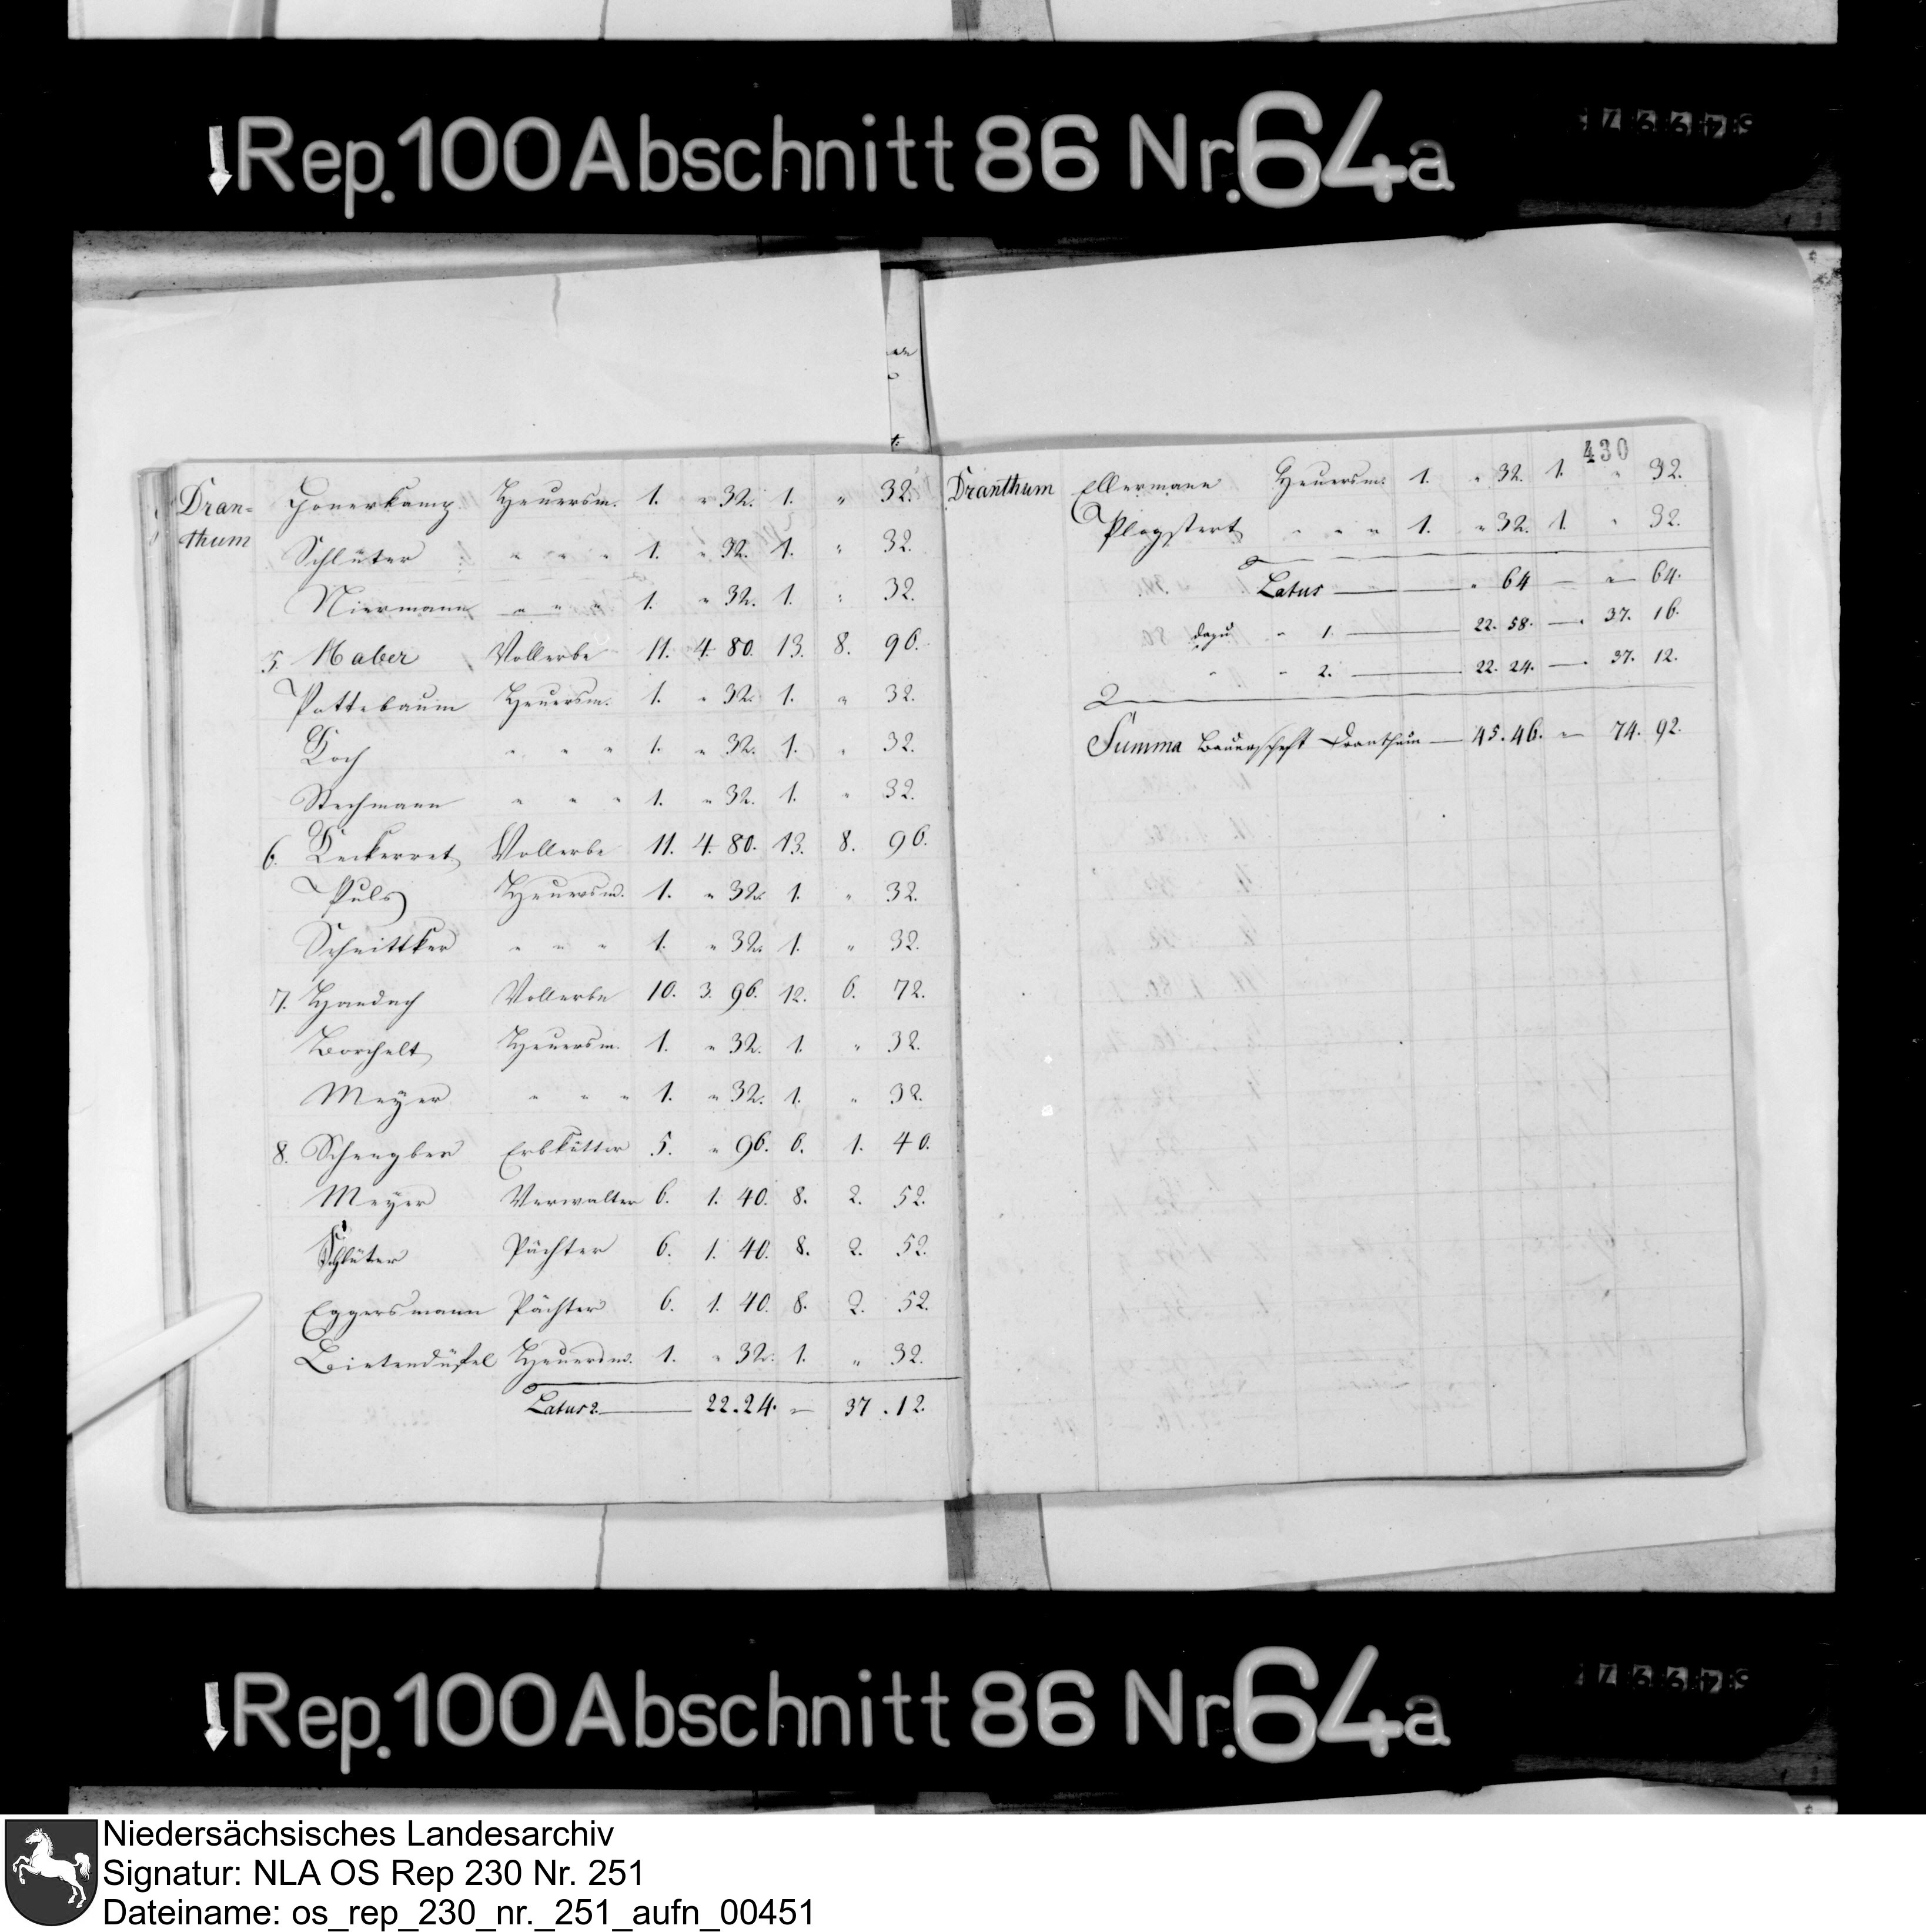 Rep. 100 Abschnitt 86 Nr. 64a
54997
430
Dran-
thum
Honerkamp Heuersm. 1. " 32. 1. " 32.
Schlüter " " " 1. " 32. 1. " 32.
Niermann " " " 1. " 32. 1. " 32.
5. Maber Vollerbe 11. 4. 80. 13. 8. 96.
Pottebaum Heuersm. 1. " 32. 1. " 32.
Koch " " " 1. " 32. 1. " 32.
Stechmann " " " 1. " 32. 1. " 32.
6. Vollerbe 11. 4. 80. 13. 8. 96.
Puls Heuersm. 1. " 32. 1. " 32.
Schnittker " " " 1. " 32. 1. " 32.
7. Vollerbe 10. 3. 96. 12. 6. 72.
Borchelt Heuersm. 1. " 32. 1. " 32.
Meyer " " " 1. " 32. 1. " 32.
8. Schengber Erbkötter 5. " 96. 6. 1. 40.
Meyer Verwalter 6. 1. 40. 8. 2. 52.
Schlüter Pächter 6. 1. 40. 8. 2. 52.
Eggersmann Pächter 6. 1. 40. 8. 2. 52.
Bietendüfel Heuersm. 1. " 32. 1. " 32.
Latus 2. 22. 24. " 37. 12.
Dranthum
Ellermann Heuersm. 1. " 32. 1. " 32.
Plogstert " " " 1. " 32. 1. " 32.
Latus " 64 — " 64.
dazu " 1. 22. 58. — 37. 16.
" " 2. 22. 24. — 37. 12.
Summa Bauerschaft Dranthum 45. 46. " 74. 92.
Rep. 100 Abschnitt 86 Nr. 64a
54997
Niedersächsisches Landesarchiv
Signatur: NLA OS Rep 230 Nr. 251
Dateiname: os_rep_230_nr._251_aufn_00451